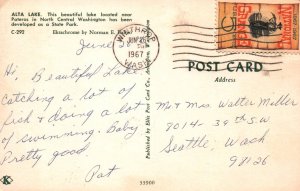 ALTA LAKE. This beautiful lake located near
Pateros in North Central Washington has been
developed as a State Park.
C-292 Ektachrome by Norman E.
WINTHROP
JUN
PM
1967
WASH.
June
Hi, Beautiful Lake,
fish & doing a lot
of swimming. Baby
Pretty good
Pat
POST CARD
Address
Mr & Mrs. Walter Miller
8014 - 39th S.W.
Seattle, Wash
98126
Published by Ellis Post Card Co., Arlington,
K
55900